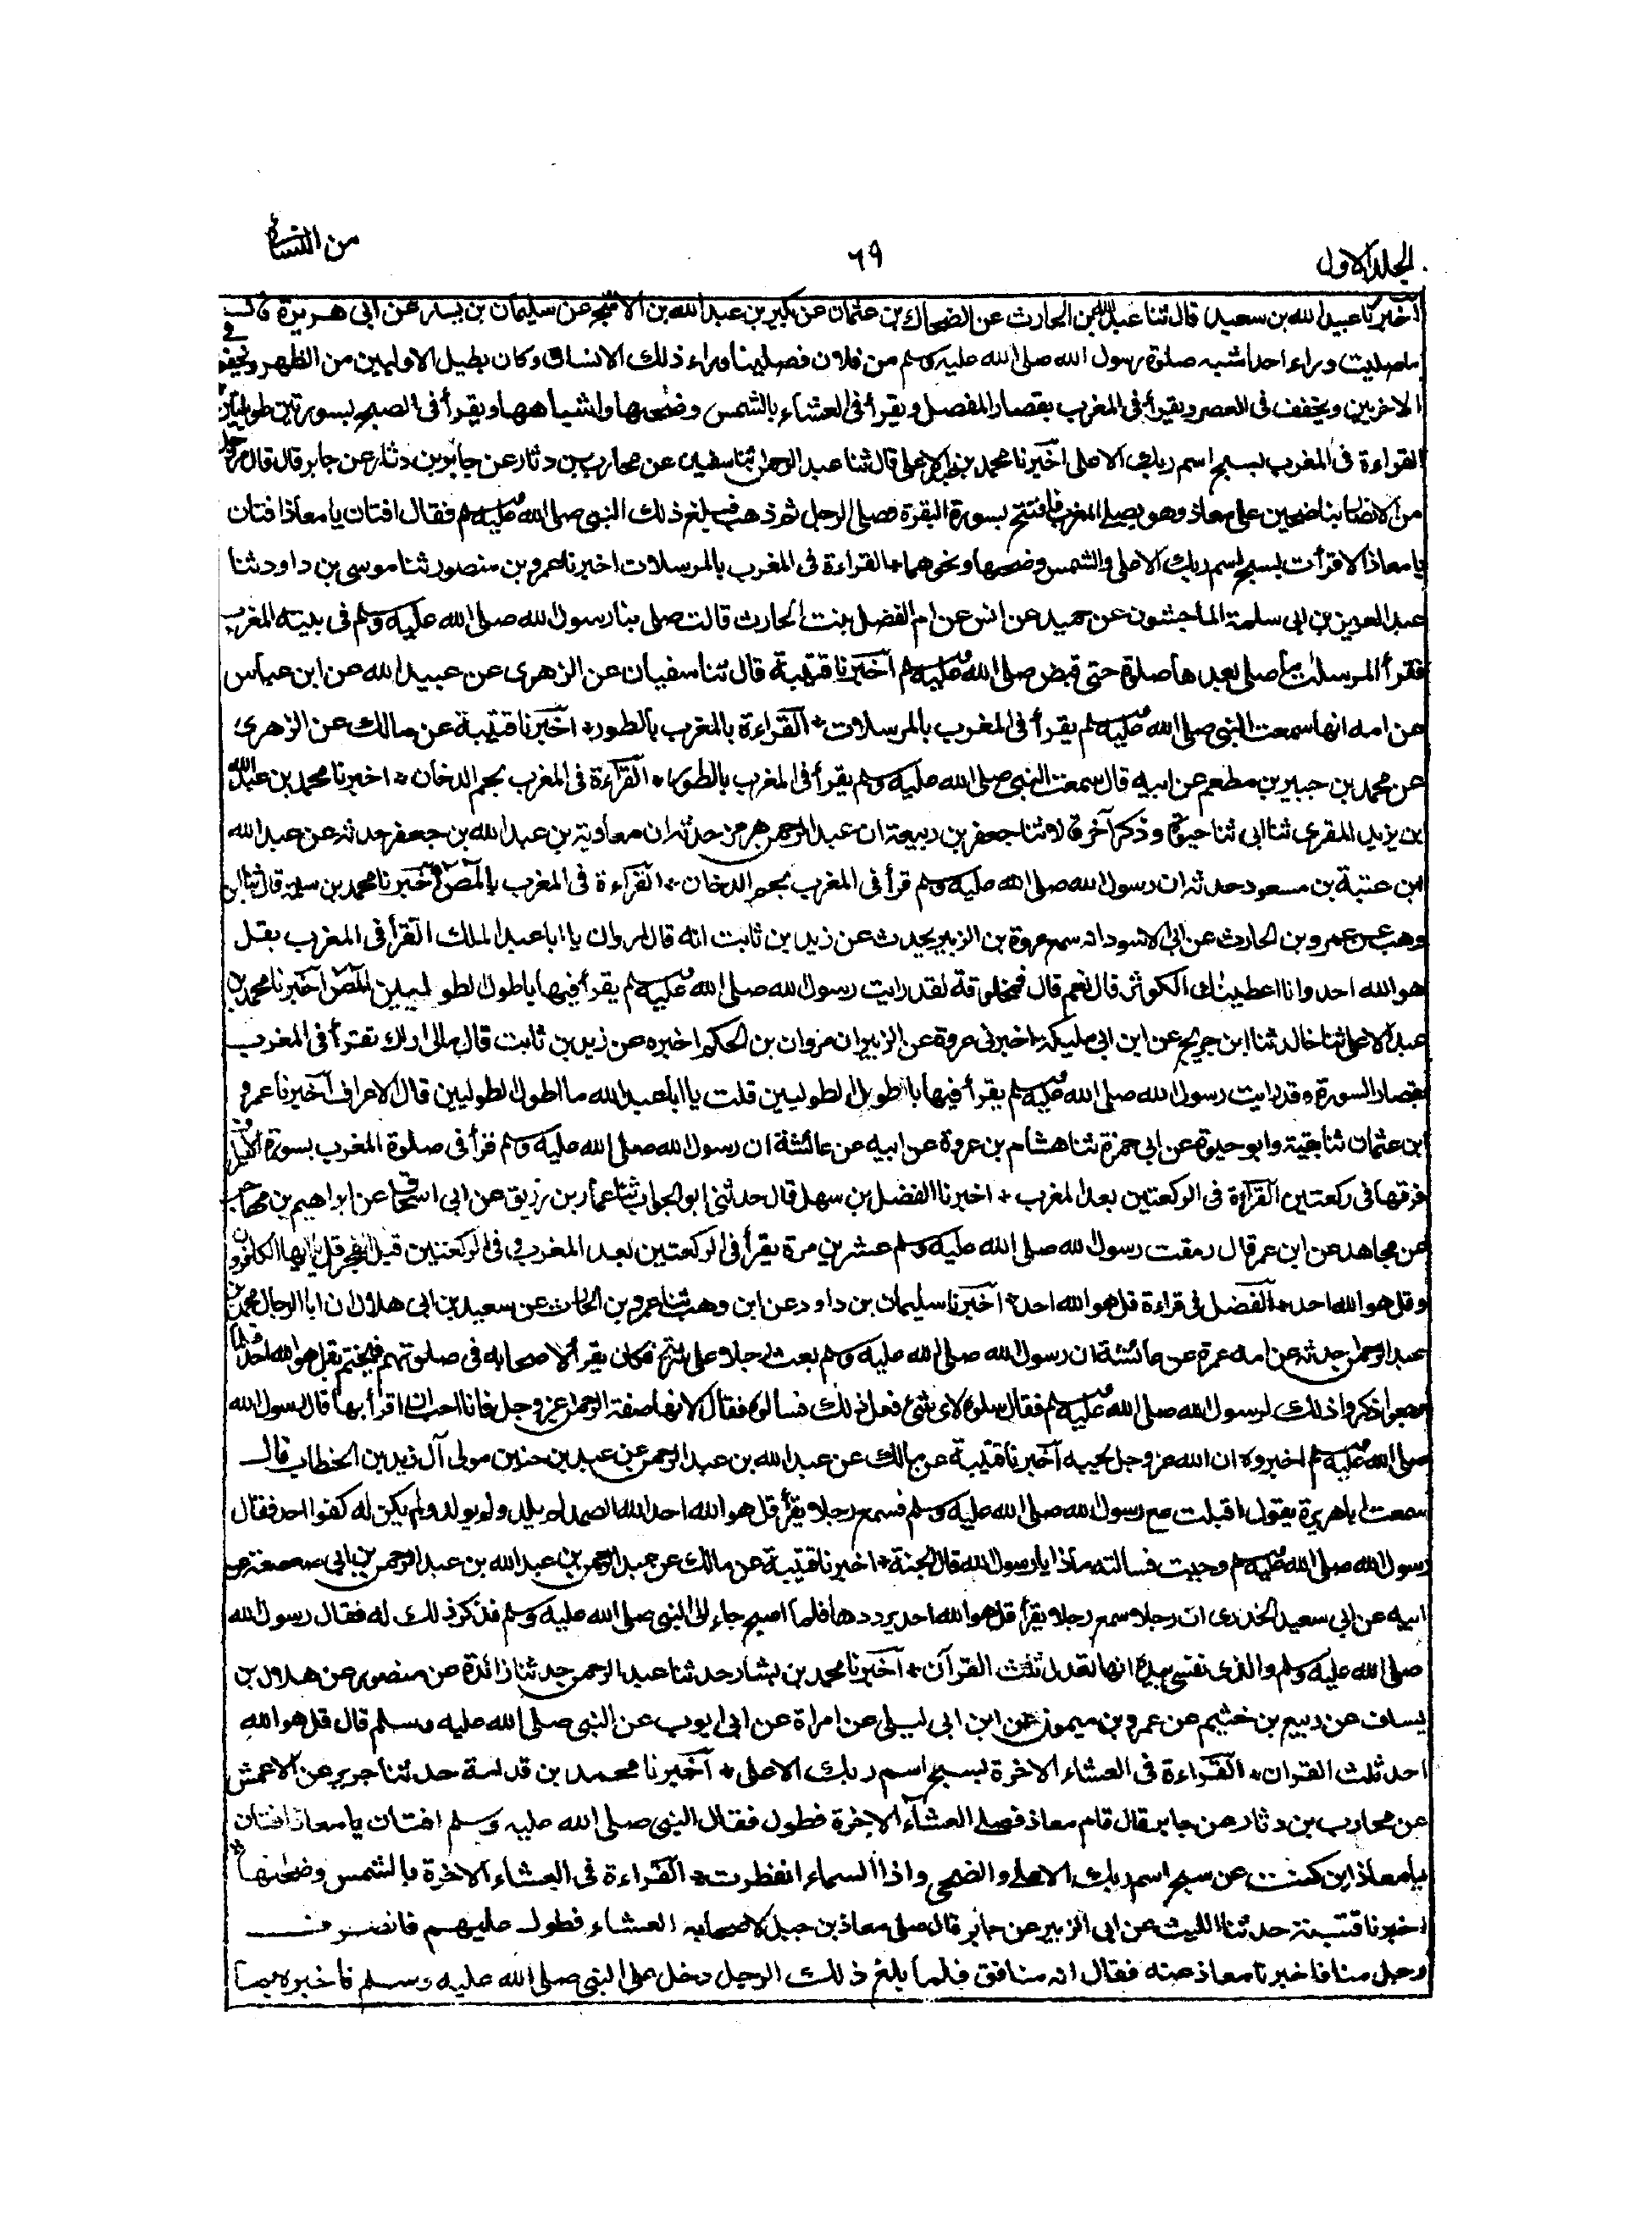 الجلد الاول
٦٩
من النسائي
اخبرنا عبيد الله بن سعيد قال ثنا عبد الله بن الحارث عن الضحاك بن عثمان عن بكير بن عبد الله بن الاشج عن سليمان بن يسار عن ابى هريرة قال
ما صليت وراء احد اشبه صلوة برسول الله صلى الله عليه وسلم من فلان فصلينا وراء ذلك الانسان وكان يطيل الاوليين من الظهر ويخفف في
الاخريين ويخفف فى العصر ويقرأ فى المغرب بقصار المفصل ويقرأ فى العشاء بالشمس وضحها واشباهها ويقرأ فى الصبح بسورتين طويلتين
القراءة فى المغرب بسبح اسم ربك الاعلى اخبرنا محمد بن قال ثنا عبد الرحمن ثنا سفين عن محارب بن دثار عن جابر بن دثار عن جابر قال قال مر رجل
من الانصار بناضحين على معاذ وهو يصلى المغرب فافتتح بسورة البقرة فصلى الرجل ثم ذهب فبلغ ذلك النبى صلى الله عليه وسلم فقال افتان يا معاذ افتان
يا معاذ الا قرأت بسبح اسم ربك الاعلى والشمس وضحها ونحوهما * القراءة فى المغرب بالمرسلات اخبرنا عمرو بن منصور ثنا موسى بن داود ثنا
عبد العزيز بن ابى سلمة الماجشون عن حميد عن انس عن ام الفضل بنت الحارث قالت صلى بنا رسول الله صلى الله عليه وسلم فى بيته المغرب
فقرأ المرسلات ما صلى بعدها صلوة حتى قبض صلى الله عليه وسلم اخبرنا قتيبة قال ثنا سفيان عن الزهرى عن عبيد الله عن ابن عباس
عن امه انها سمعت النبى صلى الله عليه وسلم يقرأ فى المغرب بالمرسلات * القراءة بالمغرب بالطور * اخبرنا قتيبة عن مالك عن الزهرى
عن محمد بن جبير بن مطعم عن ابيه قال سمعت النبى صلى الله عليه وسلم يقرأ فى المغرب بالطور * القراءة فى المغرب بحم الدخان * اخبرنا محمد بن عبد الله
ابن يزيد المقرى ثنا ابى ثنا حيوة وذكر آخر قالا ثنا جعفر بن ربيعة ان عبد الرحمن هرمز حدثه ان معاوية بن عبد الله بن جعفر حدثه عن عبد الله
ابن عتبة بن مسعود حدثه ان رسول الله صلى الله عليه وسلم قرأ فى المغرب بحم الدخان * القراءة فى المغرب بالمص اخبرنا محمد بن سلمة قال ثنا ابن
وهب عن عمرو بن الحارث عن ابى الاسود انه سمع عروة بن الزبير يحدث عن زيد بن ثابت انه قال لمروان يا ابا عبد الملك اتقرأ فى المغرب بقل
هو الله احد وانا اعطينك الكوثر قال نعم قال فمحلوفة لقد رايت رسول الله صلى الله عليه وسلم يقرأ فيها باطول الطوليين المص اخبرنا محمد بن
عبد الاعلى ثنا خالد ثنا ابن جريج عن ابن ابى مليكة اخبرنى عروة عن الزبير ان مروان بن الحكم اخبره عن زيد بن ثابت قال مالى اراك تقترأ فى المغرب
بقصار السورة وقد رايت رسول الله صلى الله عليه وسلم يقرأ فيها باطول الطوليين قلت يا ابا عبد الله ما اطول الطوليين قال الاعراف اخبرنا عمرو
ابن عثمان ثنا بقية وابو حيوة عن ابى حمزة ثنا هشام بن عروة عن ابيه عن عائشة ان رسول الله صلى الله عليه وسلم قرأ فى صلوة المغرب بسورة الاعراف
فرقها فى ركعتين القراءة فى الركعتين بعد المغرب * اخبرنا الفضل بن سهل قال حدثنى ابو الجواب ثنا عمار بن رزيق عن ابى اسحاق عن ابراهيم بن مهاجر
عن مجاهد عن ابن عمر قال رمقت رسول الله صلى الله عليه وسلم عشرين مرة يقرأ فى الركعتين بعد المغرب وفى الركعتين قبل الفجر قل يا ايها الكافرون
وقل هو الله احد * الفضل فى قراءة قل هو الله احد * اخبرنا سليمان بن داود عن ابن وهب ثنا عمرو بن الحارث عن سعيد بن ابى هلال ان ابا الرجال محمد بن
عبد الرحمن حدثه عن امه عمرة عن عائشة ان رسول الله صلى الله عليه وسلم بعث رجلا على سرية فكان يقرأ لاصحابه فى صلوتهم فيختم بقل هو الله احد فلما
رجعوا ذكروا ذلك لرسول الله صلى الله عليه وسلم فقال سلوه لاى شئ فعل ذلك فسالوه فقال لانها صفة الرحمن عز وجل فانا احب ان اقرأ بها قال رسول الله
صلى الله عليه وسلم اخبروه ان الله عز وجل يحبه اخبرنا قتيبة عن مالك عن عبد الله بن عبد الرحمن عن عبيد بن حنين مولى آل زيد بن الخطاب قال
سمعت ابا هريرة يقول اقبلت مع رسول الله صلى الله عليه وسلم فسمع رجلا يقرأ قل هو الله احد الله الصمد لم يلد ولم يولد ولم يكن له كفوا احد فقال
رسول الله صلى الله عليه وسلم وجبت فسالته ماذا يا رسول الله قال الجنة * اخبرنا قتيبة عن مالك عن عبد الرحمن بن عبد الله بن عبد الرحمن بن ابى صعصعة عن
ابيه عن ابى سعيد الخدرى ان رجلا سمع رجلا يقرأ قل هو الله احد يرددها فلما اصبح جاء الى النبى صلى الله عليه وسلم فذكر ذلك له فقال رسول الله
صلى الله عليه وسلم والذى نفسى بيده انها لتعدل ثلث القرآن * اخبرنا محمد بن بشار حدثنا عبد الرحمن حدثنا زائدة عن منصور عن هلال بن
يساف عن ربيع بن خثيم عن عمرو بن ميمون عن ابن ابى ليلى عن امراة عن ابى ايوب عن النبى صلى الله عليه وسلم قال قل هو الله
احد ثلث القران * القراءة فى العشاء الاخرة بسبح اسم ربك الاعلى * اخبرنا محمد بن قدامة حدثنا جرير عن الاعمش
عن محارب بن دثار عن جابر قال قام معاذ فصلى العشاء الاخرة فطول فقال النبى صلى الله عليه وسلم افتان يا معاذ افتان
يا معاذ اين كنت عن سبح اسم ربك الاعلى والضحى واذا السماء انفطرت * القراءة فى العشاء الاخرة بالشمس وضحها *
اخبرنا قتيبة حدثنا الليث عن ابى الزبير عن جابر قال صلى معاذ بن جبل لاصحابه العشاء فطول عليهم فانصرف
رجل منا فاخبرنا معاذ عنه فقال انه منافق فلما بلغ ذلك الرجل دخل على النبى صلى الله عليه وسلم فاخبره بما